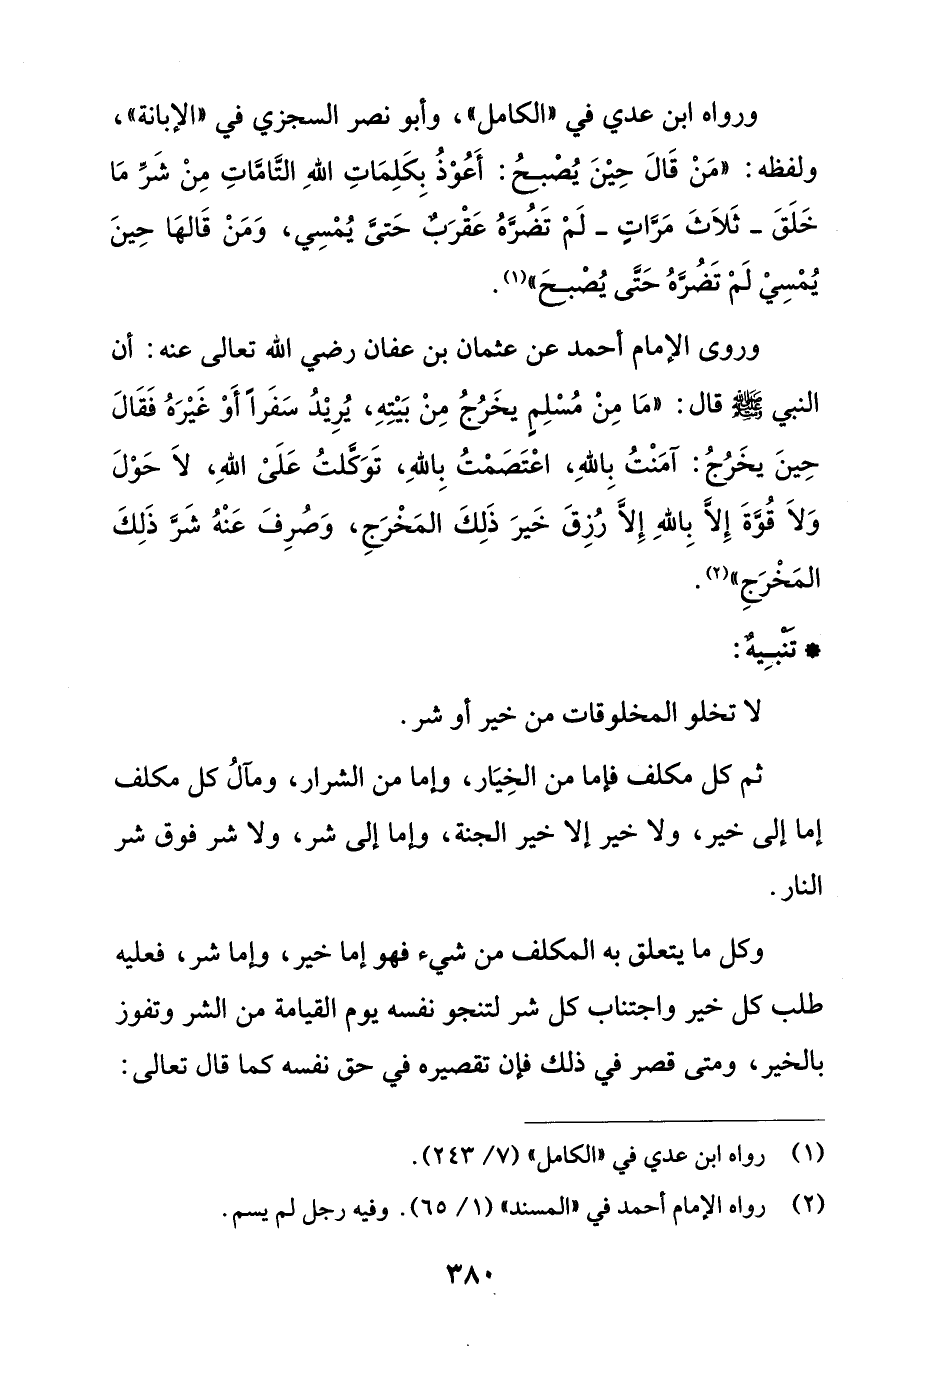 ورواه ابن عدي في «الكامل»، وأبو نصر السجزي في «الإبانة»،
ولفظه: «مَنْ قَالَ حِيْنَ يُصْبِحُ: أَعُوْذُ بِكَلِمَاتِ اللهِ التَّامَّاتِ مِنْ شَرِّ مَا
خَلَقَ ـ ثَلاَثَ مَرَّاتٍ ـ لَمْ تَضُرَّهُ عَقْرَبٌ حَتىَّ يُمْسِي، وَمَنْ قَالهَا حِينَ
يُمْسِيْ لَمْ تَضُرَّهُ حَتَّى يُصْبِحَ»(١).
وروى الإمام أحمد عن عثمان بن عفان رضي الله تعالى عنه: أن
النبي ﷺ قال: «مَا مِنْ مُسْلِمٍ يخَرُجُ مِنْ بَيْتِهِ، يُرِيْدُ سَفَراً أَوْ غَيْرَهُ فَقَالَ
حِينَ يخَرُجُ: آمَنْتُ بِاللهِ، اعْتَصَمْتُ بِاللهِ، تَوَكَّلتُ عَلَىْ اللهِ، لاَ حَوْلَ
وَلاَ قُوَّةَ إِلاَّ بِاللهِ إِلاَّ رُزِقَ خَيرَ ذَلِكَ المَخْرَجِ، وَصُرِفَ عَنْهُ شَرَّ ذَلِكَ
المَخْرَجِ»(٢).
* تَنْبِيهٌ:
لا تخلو المخلوقات من خير أو شر.
ثم كل مكلف فإما من الخِيَار، وإما من الشرار، ومآلُ كل مكلف
إما إلى خير، ولا خير إلا خير الجنة، وإما إلى شر، ولا شر فوق شر
النار.
وكل ما يتعلق به المكلف من شيء فهو إما خير، وإما شر، فعليه
طلب كل خير واجتناب كل شر لتنجو نفسه يوم القيامة من الشر وتفوز
بالخير، ومتى قصر في ذلك فإن تقصيره في حق نفسه كما قال تعالى:
(١) رواه ابن عدي في «الكامل» (٧/ ٢٤٣).
(٢) رواه الإمام أحمد في «المسند» (١/ ٦٥). وفيه رجل لم يسم.
٣٨٠